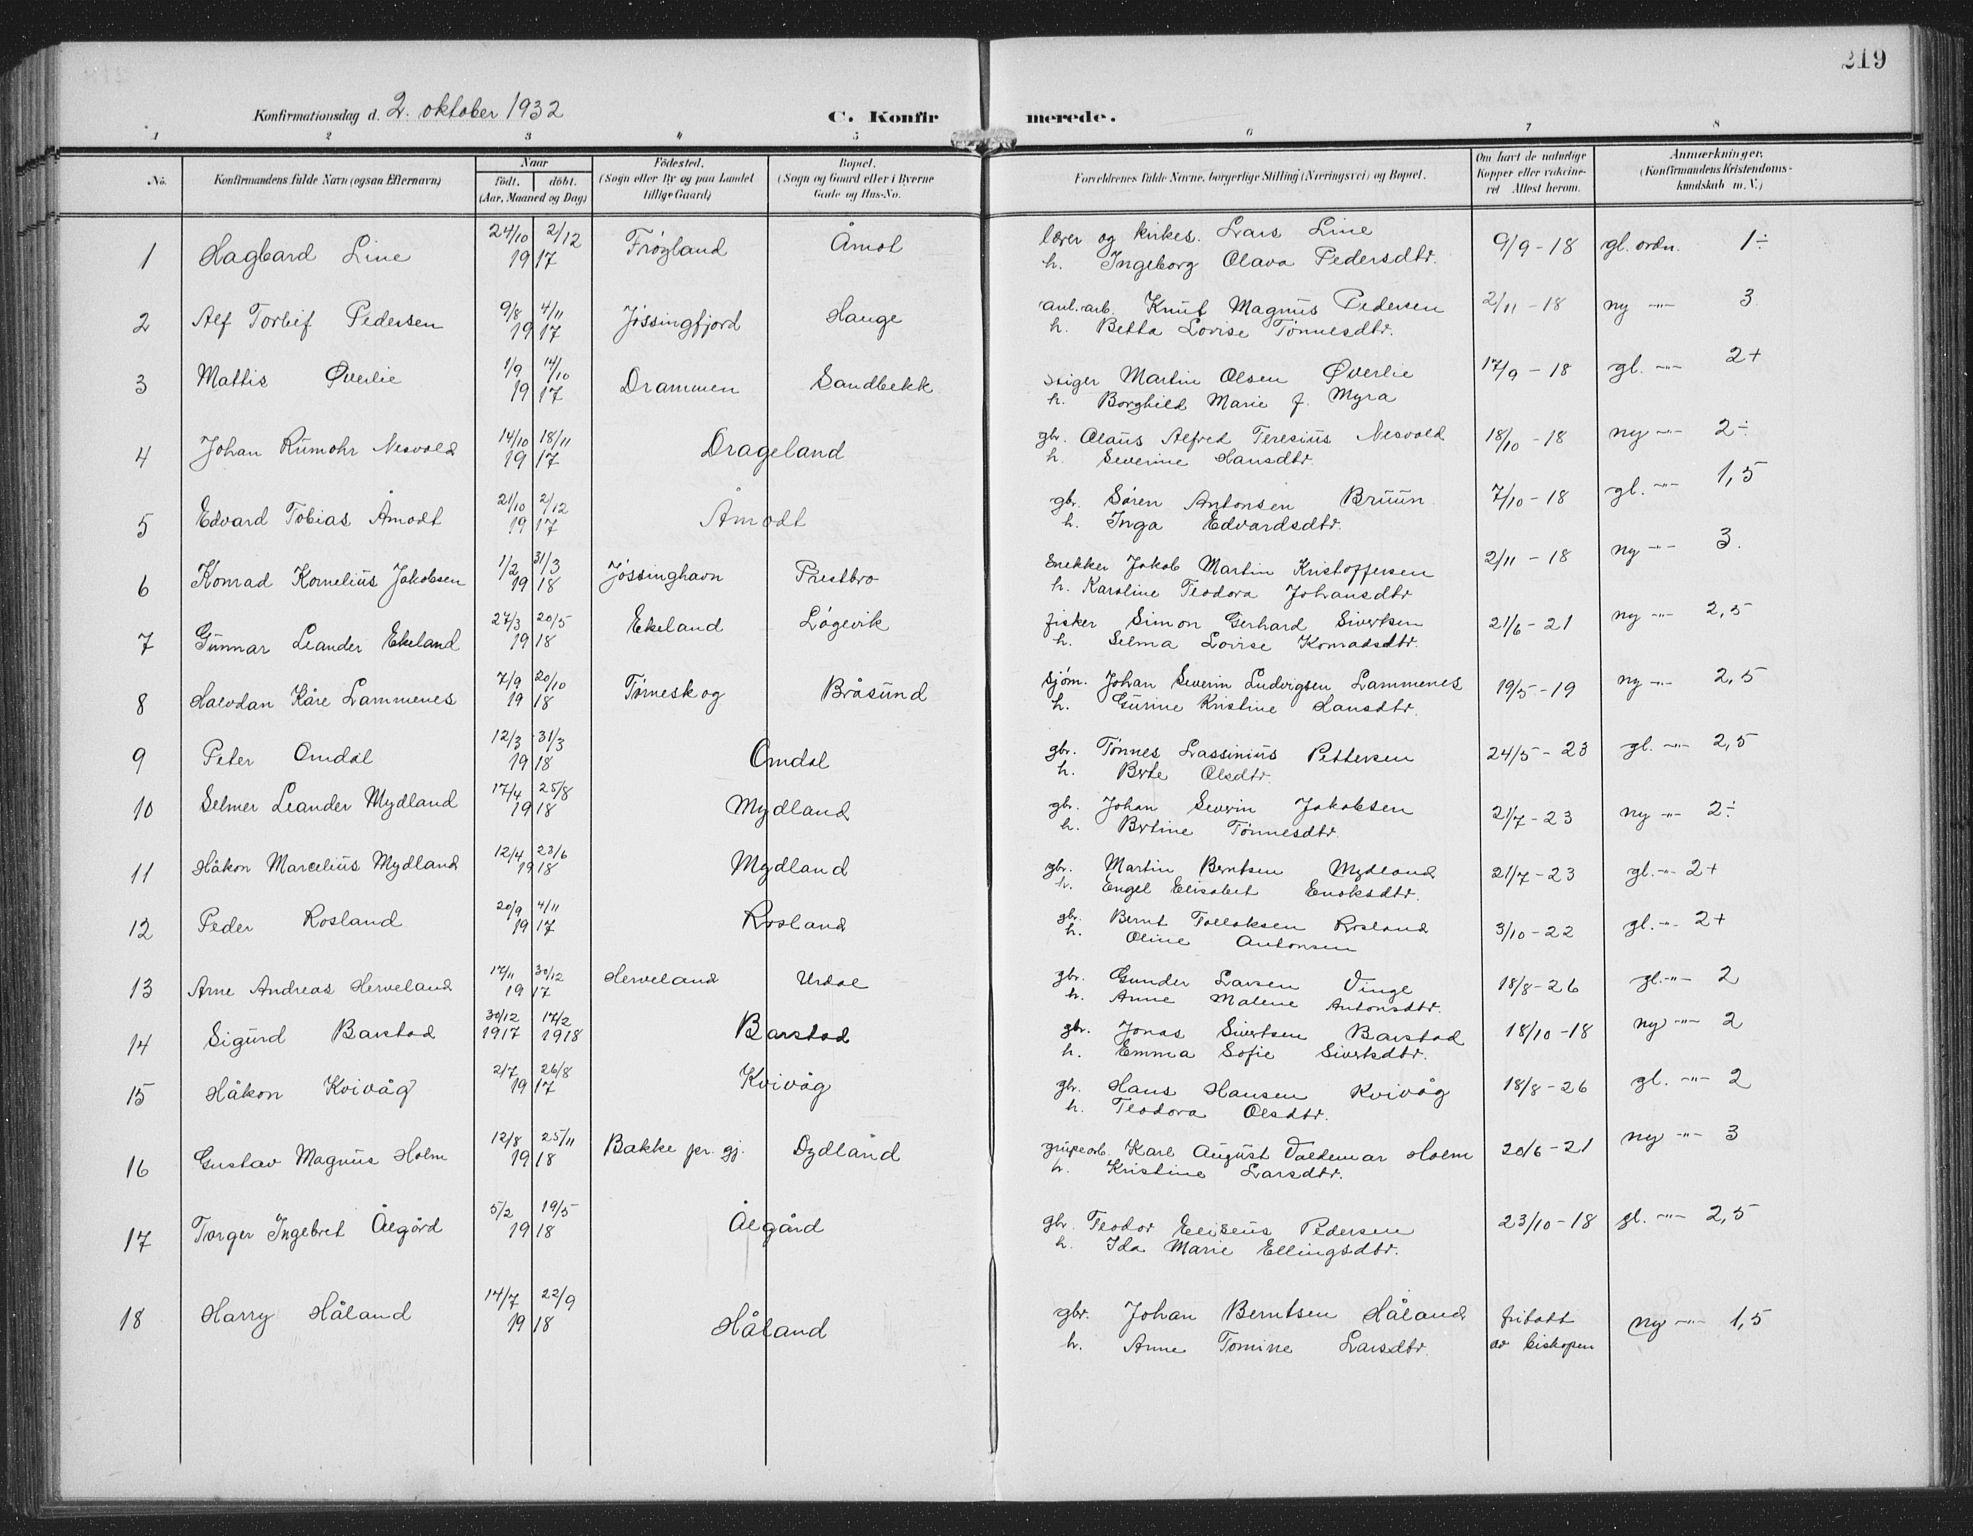 219
Konfirmationsdag d. 2. oktober 1932 C. Konfirmerede.
1 2 3 4 5 6 7 8
No. Konfirmandens fulde Navn (ogsaa Efternavn) Naar født. døbt. (Aar, Maaned og Dag) Fødested. (Sogn eller By og paa Landet tillige Gaard) Bopæl. (Sogn og Gaard eller i Byerne Gade og Hus-No. Forældrenes fulde Navne, borgerlige Stilling (Næringsvei) og Bopæl. Om havt de naturlige Kopper eller vakcineret Attest herom. Anmærkninger. (Konfirmandens Kristendomskundskab m. V.)
1 Hagbard Line 24/10 2/12 1917 Frøyland Åmot lærer og kirkes. Lars Line 9/9-18 gl. ordn. 1÷
h. Ingeborg Olava Pedersdtr.
2 Alf Torleif Pedersen 9/8 4/11 1917 Jøssingfjord Hauge anl.arb. Knut Magnus Pedersen 2/11-18 ny -"- 3.
h. Betta Lovise Tønnesdtr.
3 Mattis Øverlie 1/9 14/10 1917 Drammen Sandbekk stiger Martin Olsen Øverlie 17/9-18 gl. -"- 2+
h. Borghild Marie f. Myra
4 Johan Rumohr Nesvold 14/10 18/11 1917 Drageland gbr. Olaus Alfred Teresius Nesvold 18/10-18 ny -"- 2÷
h. Severine Hansdtr.
5 Edvard Tobias Åmodt 21/10 2/12 1917 Åmodt gbr. Søren Antonsen Bruun 7/10-18 gl. -"- 1,5
h. Inga Edvardsdtr.
6 Konrad Kornelius Jakobsen 1/2 31/3 1918 Jøssinghavn Prestbro snekker Jakob Martin Kristoffersen 2/11-18 ny -"- 3.
h. Karoline Teodora Johansdtr
7 Gunnar Leander Ekeland 27/3 20/5 1918 Ekeland Løgevik fisker Simon Gerhard Sivertsen 21/6-21 ny -"- 2,5
h. Selma Lovise Konradsdtr.
8 Halvdan Kåre Lammenes 7/9 20/10 1918 Tørneskog Bråsund sjøm. Johan Severin Ludvigsen Lammenes 19/5-19 ny -"- 2,5
h. Gurine Kristine Hansdtr.
9 Peter Omdal 12/3 31/3 1918 Omdal gbr. Tønnes Lassinius Pettersen 24/5-23 gl. -"- 2,5
h. Brte Olsdtr.
10 Selmer Leander Mydland 17/4 25/8 1918 Mydland gbr. Johan Severin Jakobsen 21/7-23 ny -"- 2÷
h. Brtine Tønnesdtr.
11 Håkon Marcelius Mydland 12/4 23/6 1918 Mydland gbr. Martin Berntsen Mydland 21/7-23 gl. -"- 2+
h. Engel Elisabet Enoksdtr.
12 Peder Rosland 20/9 4/11 1917 Rosland gbr. Bernt Tollaksen Rosland 3/10-22 gl. -"- 2+
h. Oline Antonsen
13 Arne Andreas Herveland 17/11 30/12 1917 Herveland Urdal gbr. Gunder Larsen Vinge 18/8-26 gl. -"- 2
h. Anne Malene Antonsdtr.
14 Sigurd Barstad 30/12 1917 17/2 1918 Barstad gbr. Jonas Sivertsen Barstad 18/10-18 ny -"- 2
h. Emma Sofie Sivertsdtr.
15 Håkon Kvivåg 2/7 26/8 1917 Kvivåg gbr. Hans Hansen Kvivåg 18/8-26 gl. -"- 2
h. Teodora Olsdtr.
16 Gustav Magnus Holm 12/8 25/11 1918 Bakke pr. gj. Dydland grubearb. Karl August Valdemar Holm 20/6-21 ny -"- 3
h. Kristine Larsdtr.
17 Torger Ingebret Ålgård 5/2 19/5 1918 Ålgård gbr. Teodor Eliseus Pedersen 23/10-18 gl. -"- 2,5
h. Ida Marie Ellingsdtr.
18 Harry Håland 14/7 22/9 1918 Håland gbr. Johan Berntsen Håland fritatt ny -"- 1,5
h. Anne Tomine Larsdtr. av biskopen